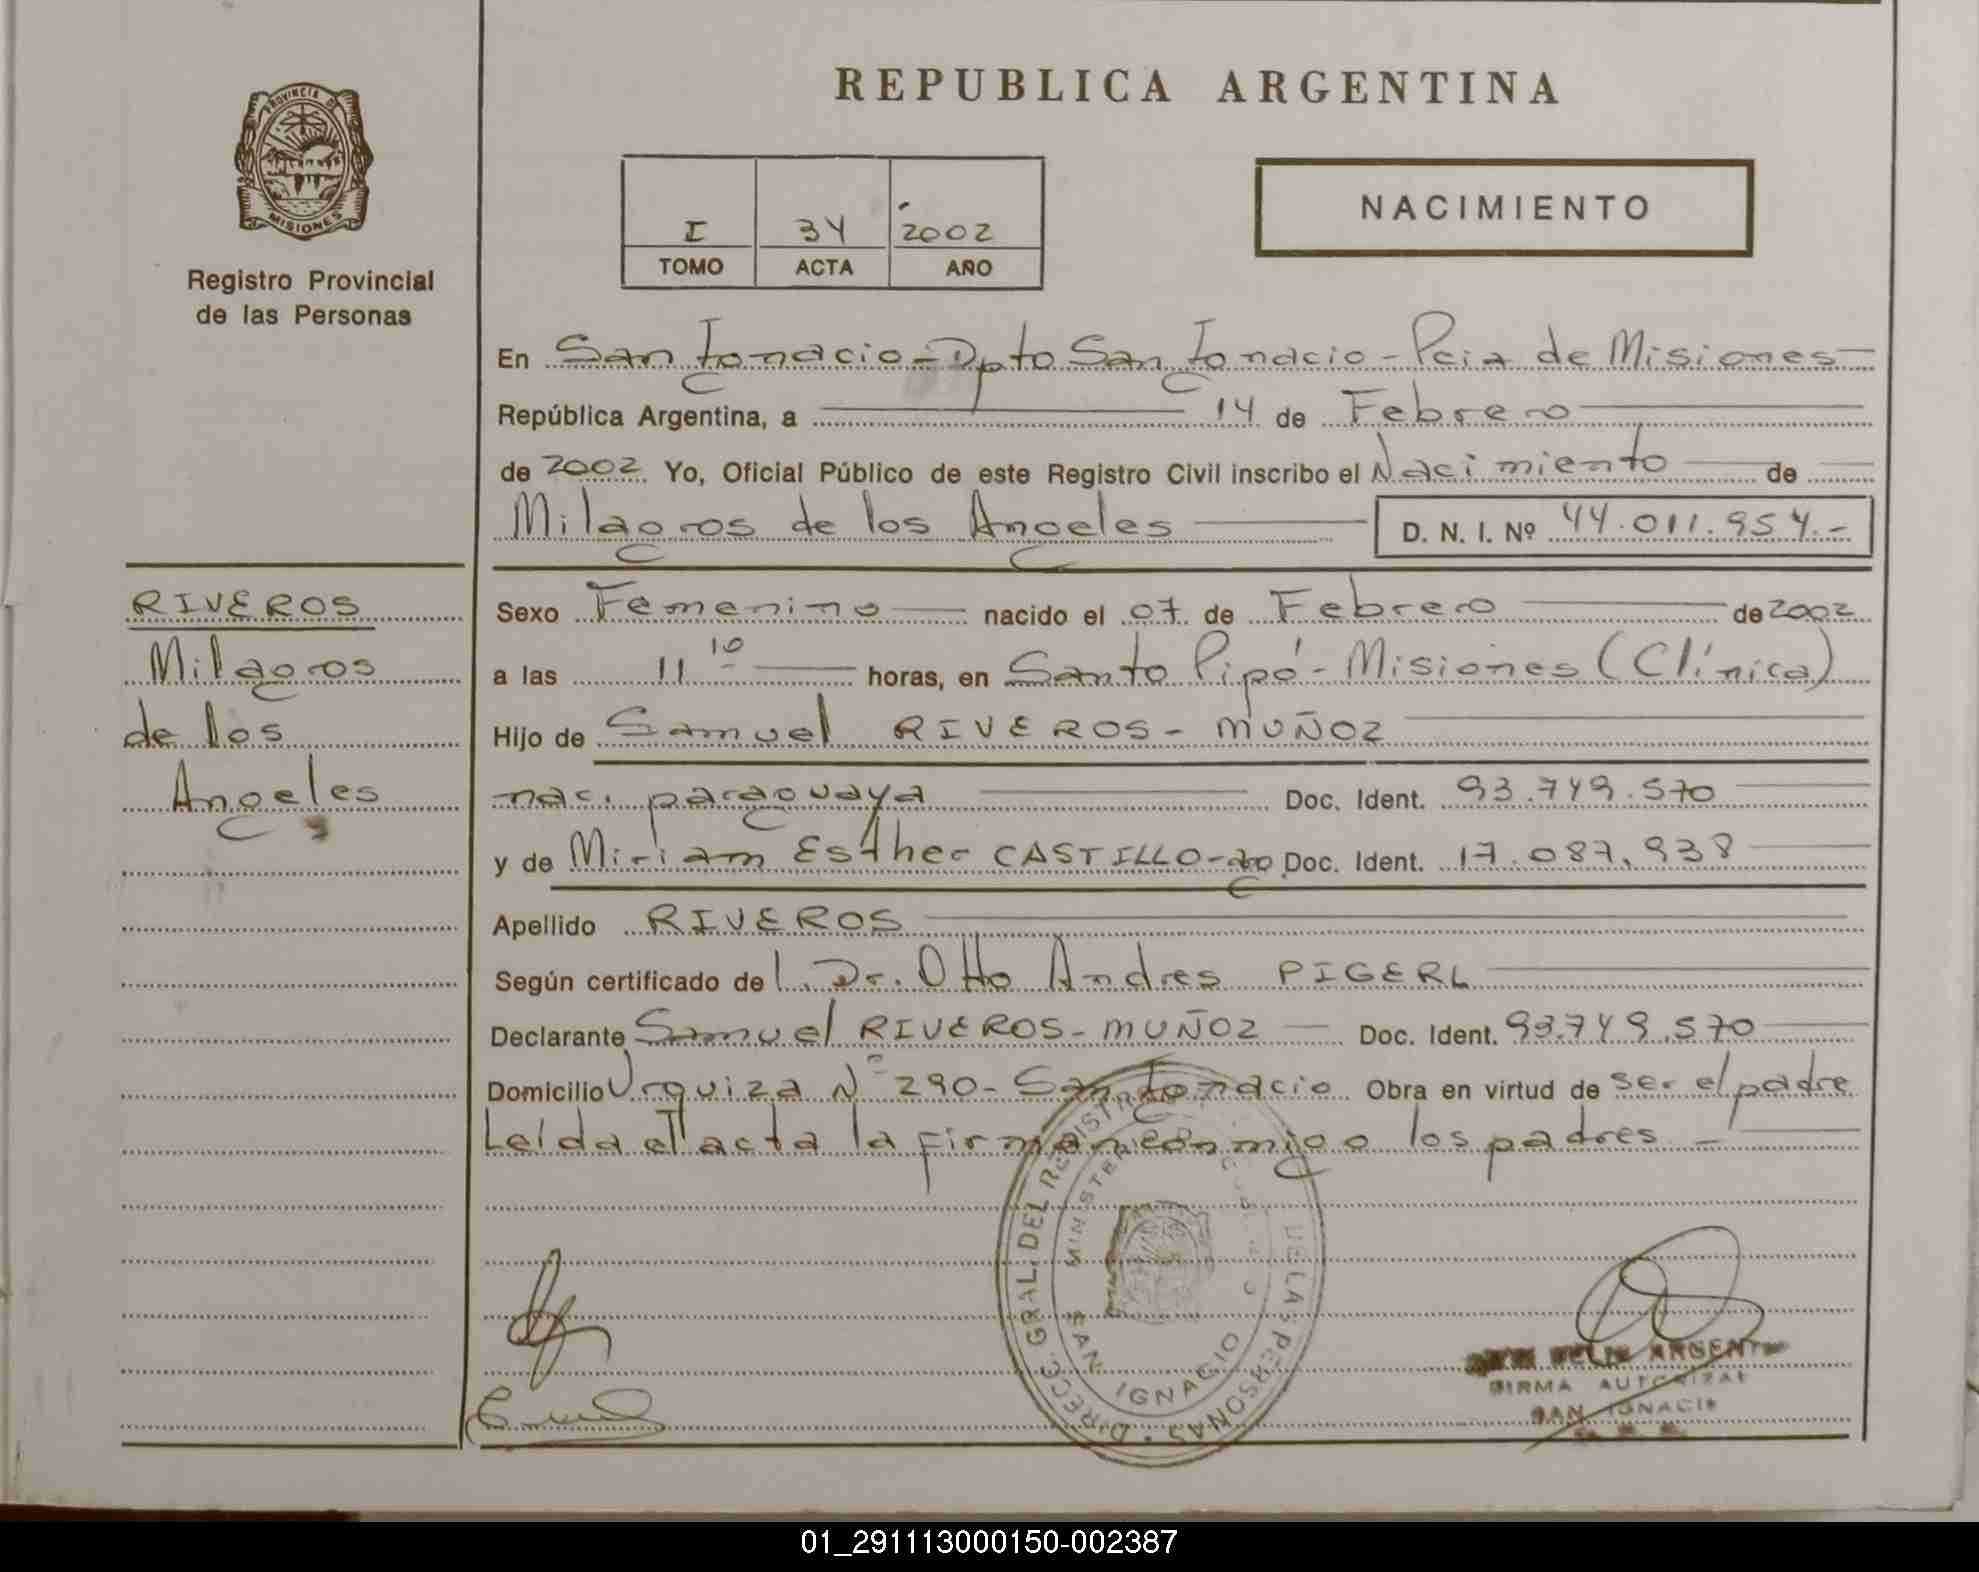 REPUBLICA ARGENTINA
PROVINCIA DE
MISIONES
Registro Provincial
de las Personas
I 34 2002
TOMO ACTA AÑO
NACIMIENTO
En San Ignacio - Dpto San Ignacio - Pcia de Misiones
República Argentina, a 14 de Febrero
de 2002 Yo, Oficial Público de este Registro Civil inscribo el Nacimiento de
Milagros de los Angeles D. N. I. Nº 44.011.954.-
RIVEROS
Milagros
de los
Angeles
Sexo Femenino nacido el 07 de Febrero de 2002
a las 11 10 horas, en Santo Pipó - Misiones (Clínica)
Hijo de Samuel RIVEROS - MUÑOZ
nac. paraguaya Doc. Ident. 93.749.570
y de Miriam Esther CASTILLO - Doc. Ident. 17.087.938
Apellido RIVEROS
Según certificado de l Dr. Otto Andres PIGERL
Declarante Samuel RIVEROS - MUÑOZ Doc. Ident. 93.749.570
Domicilio Urquiza Nº 290 - San Ignacio Obra en virtud de ser el padre
Leída el acta la firman conmigo los padres -
DIRECC. GRAL. DEL REGISTRO DE LAS PERSONAS
SAN IGNACIO
FELIX ARGENT
FIRMA AUTORIZAD
SAN IGNACIO
01_291113000150-002387